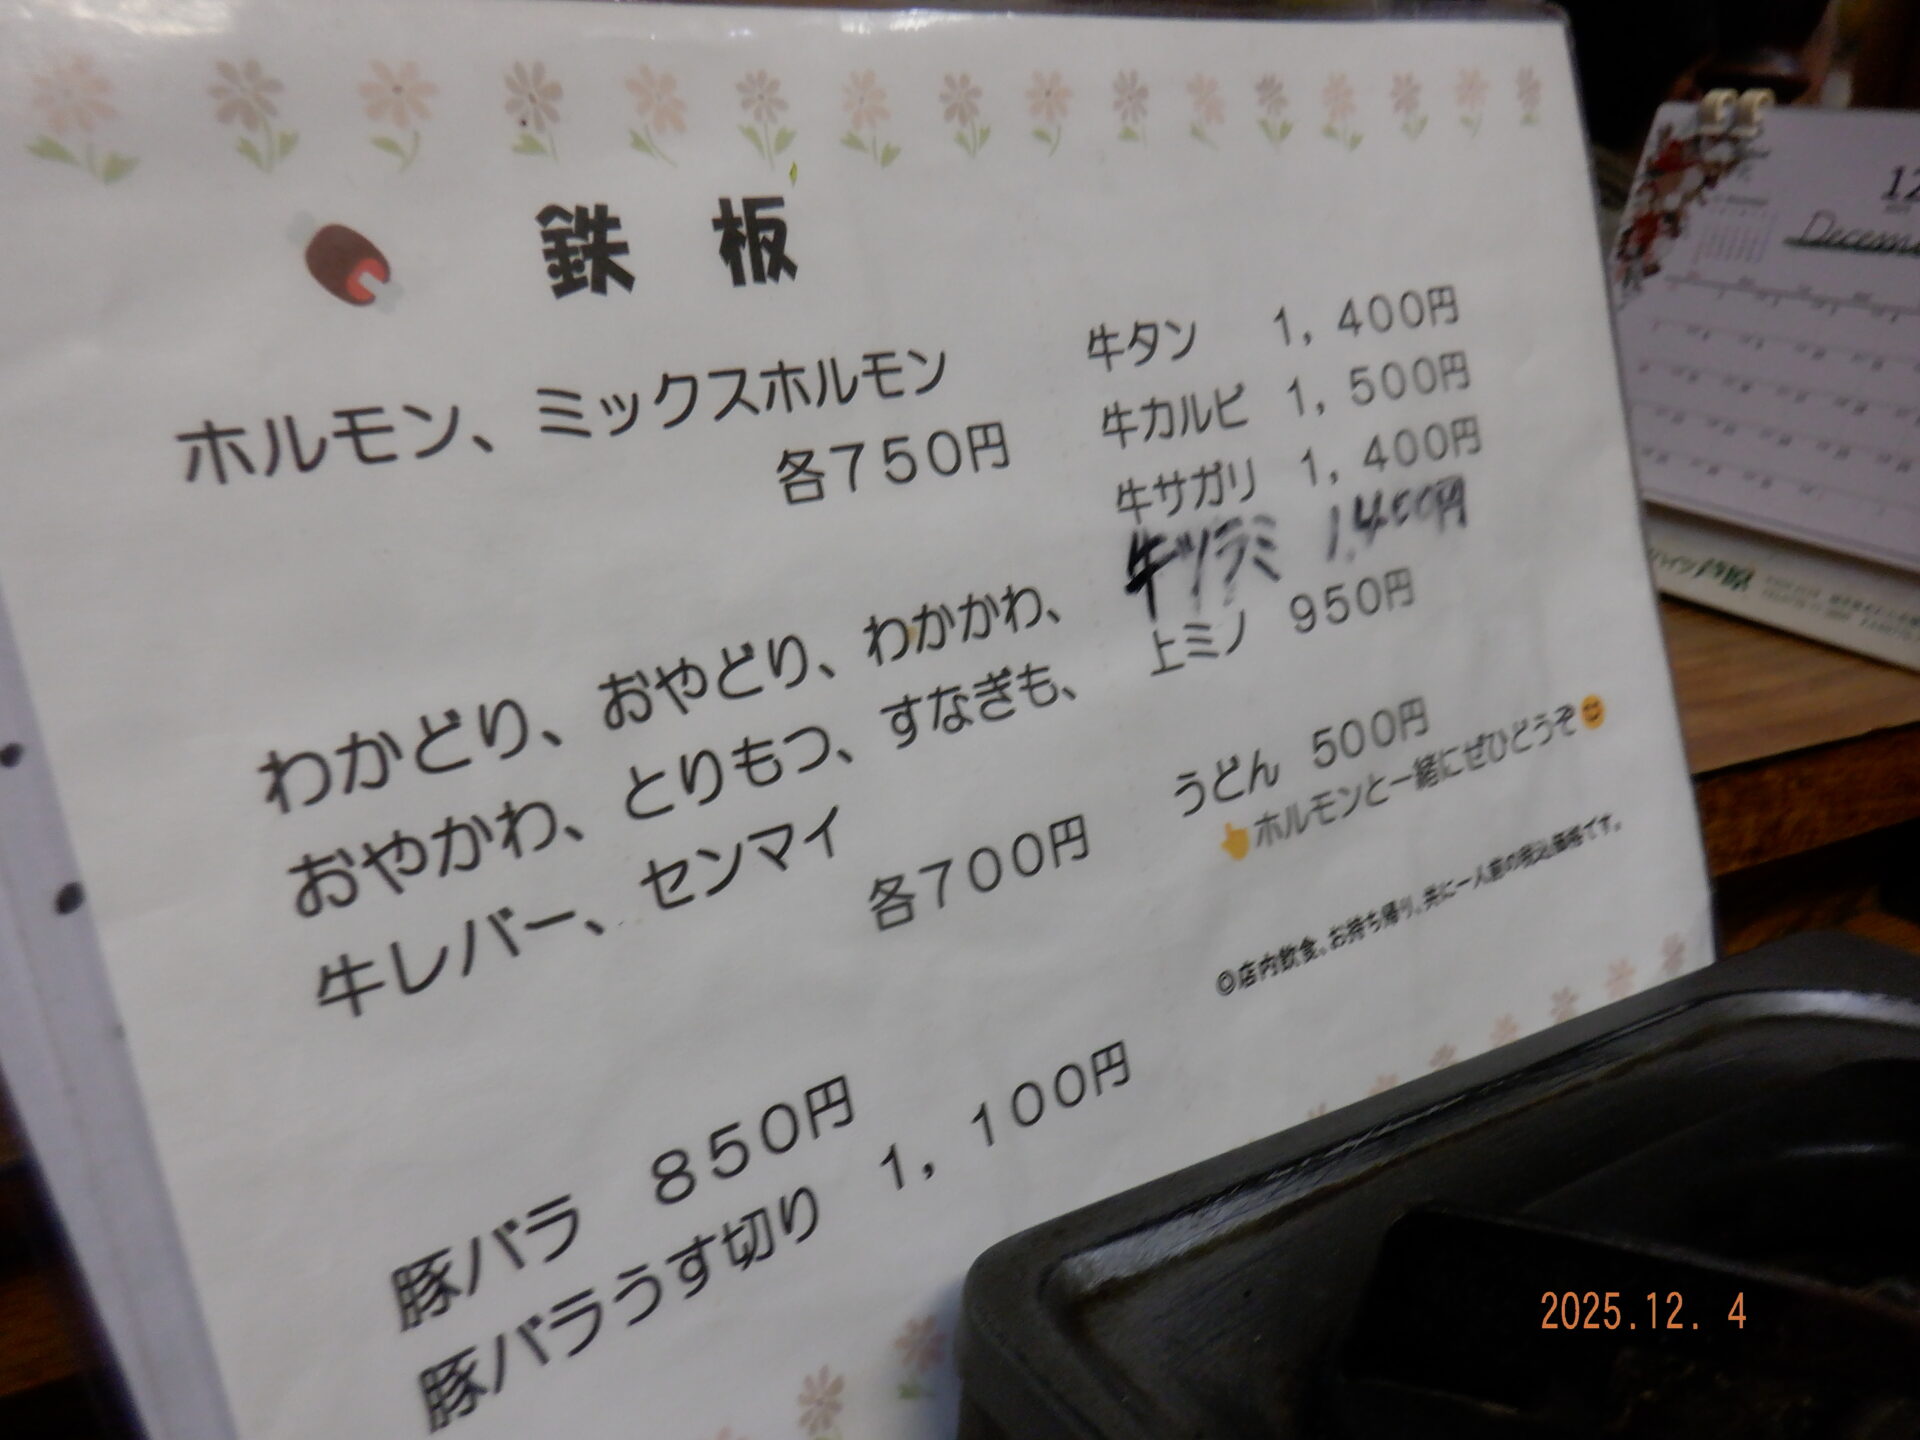 鉄 板
ホルモン、ミックスホルモン
各750円
わかどり、おやどり、わかかわ、
おやかわ、とりもつ、すなぎも、
牛レバー、センマイ
各700円
豚バラ 850円
豚バラうす切り 1,100円
牛タン 1,400円
牛カルビ 1,500円
牛サガリ 1,400円
牛ツラミ 1,400円
上ミノ 950円
うどん 500円
👆ホルモンと一緒にぜひどうぞ😊
◎店内飲食、お持ち帰り、共に一人前の税込価格です。
12
Decem
2025.12. 4